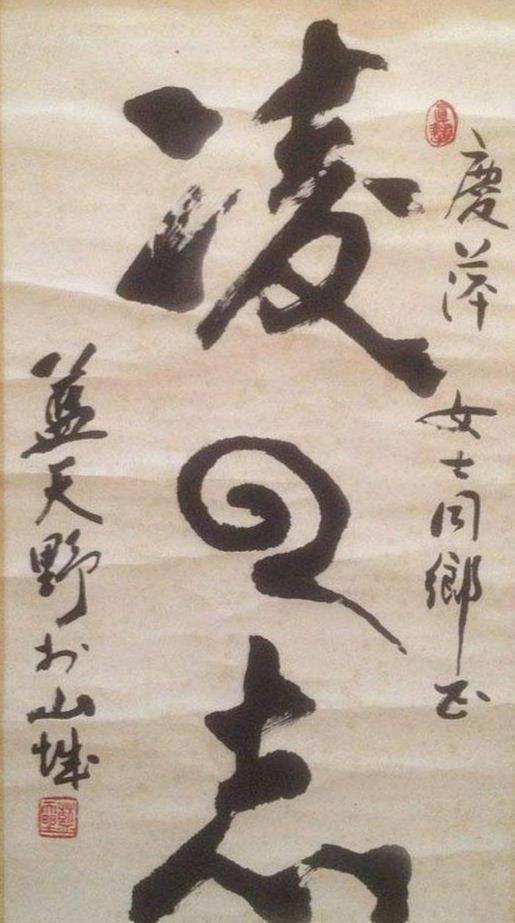 慶萍女士同鄉正
凌云志
藍天野於山城